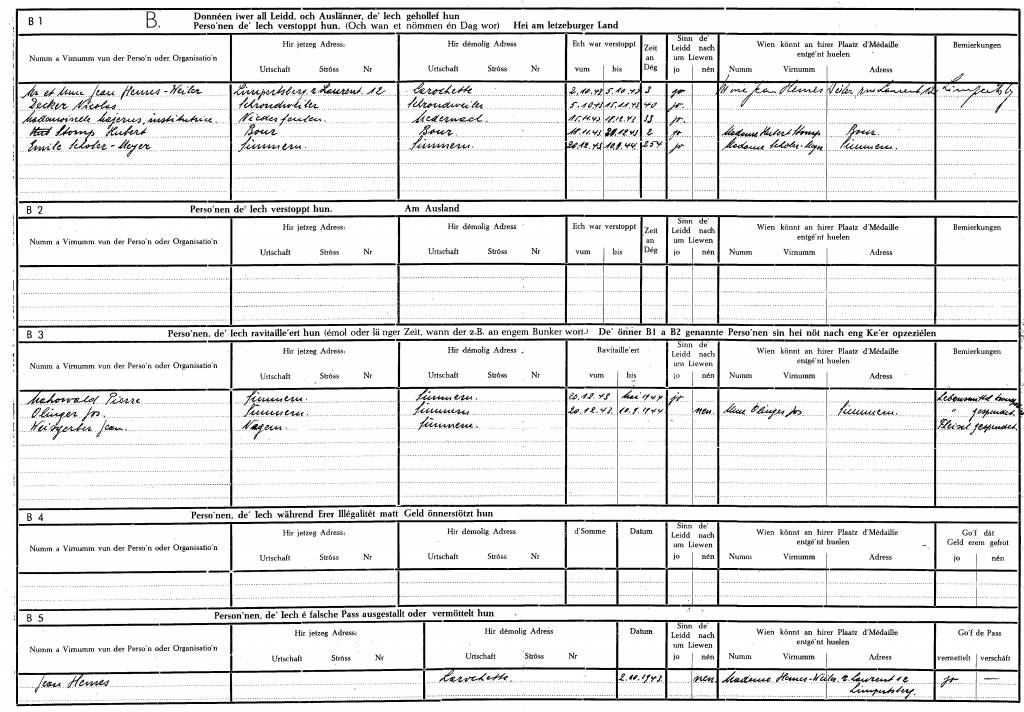 B 1 B. Donnéen iwer all Leidd, och Auslänner, de' Iech gehollef hun
Perso'nen de' Iech verstoppt hun. (Och wan et nömmen én Dag wor) Hei am letzeburger Land
Numm a Virnumm vun der Perso'n oder Organisatio'n
Hir jetzeg Adress:
Urtschaft Ströss Nr
Hir démolig Adress
Urtschaft Ströss Nr
Ech war verstoppt
vum bis
Zeit an Dég
Sinn de' Leidd nach um Liewen
jo nén
Wien könnt an hirer Plaatz d'Médaille entgé'nt huelen
Numm Virnumm Adress
Bemierkungen
Mr et Mme Jean Hemes-Weiler Limpertsberg, r. Laurent. 12 Larochette 2.10.43 5.10.43 3 jo Mme Jean Hemes Weiler rue Laurent 12 Limpertsbg
Decker Nicolas Schrondweiler Schrondweiler 5.10.43 15.11.43 40 jo.
Mademoiselle Majerus, institutrice. Niederfeulen. Medernach. 15.11.43 18.12.43 33 jo.
Stomp Hubert Bour Bour. 18.12.43 20.12.43 2 jo Madame Hubert Stomp Bour.
Emile Scholer-Meyer Simmern. Simmern. 20.12.43 10.9.44 254 jo Madame Scholer-Meyer Simmern.
B 2 Perso'nen de' Iech verstoppt hun. Am Ausland
Numm a Virnumm vun der Perso'n oder Organisatio'n
Hir jetzeg Adress:
Urtschaft Ströss Nr
Hir démolig Adress
Urtschaft Ströss Nr
Ech war verstoppt
vum bis
Zeit an Dég
Sinn de' Leidd nach um Liewen
jo nén
Wien könnt an hirer Plaatz d'Médaille entgé'nt huelen
Numm Virnumm Adress
Bemierkungen
B 3 Perso'nen, de' Iech ravitaille'ert hun (émol oder länger Zeit, wann der z.B. an engem Bunker wort.) De' önner B1 a B2 genannte Perso'nen sin hei nöt nach eng Ke'er opzeziélen
Numm a Virnumm vun der Perso'n oder Organisatio'n
Hir jetzeg Adress:
Urtschaft Ströss Nr
Hir démolig Adress
Urtschaft Ströss Nr
Ravitaille'ert
vum bis
Sinn de' Leidd nach um Liewen
jo nén
Wien könnt an hirer Plaatz d'Médaille entgé'nt huelen
Numm Virnumm Adress
Bemierkungen
Mahowald Pierre Simmern. Simmern. 20.12.43 Mai 1944 jo Lebensmittel
Olinger Jos. Simmern. Simmern 20.12.43. 10.9.1944 nen. Mme Olinger Jos Simmern. " gespendet.
Weisgerber Jean. Nagem. Simmern. Fleisch gespendet.
B 4 Perso'nen, de' Iech während Erer Illégalitét matt Geld önnerstötzt hun
Numm a Virnumm vun der Perso'n oder Organisatio'n
Hir jetzeg Adress:
Urtschaft Ströss Nr
Hir démolig Adress
Urtschaft Ströss Nr
d'Somme
Datum
Sinn de' Leidd nach um Liewen
jo nén
Wien könnt an hirer Plaatz d'Médaille entgé'nt huelen
Numm Virnumm Adress
Go'f dât Geld erem gefrot
jo nén
B 5 Perso'nen, de' Iech é falsche Pass ausgestallt oder vermöttelt hun
Numm a Virnumm vun der Perso'n oder Organisatio'n
Hir jetzeg Adress:
Urtschaft Ströss Nr
Hir démolig Adress
Urtschaft Ströss Nr
Datum
Sinn de' Leidd nach um Liewen
jo nén
Wien könnt an hirer Plaatz d'Médaille entgé'nt huelen
Numm Virnumm Adress
Go'f de Pass
vermettelt verschâft
Jean Hemes Larochette. 2.10.1943. nen. Madame Hemes-Weiler. r. Laurent 12 jo —
Limpertsberg.